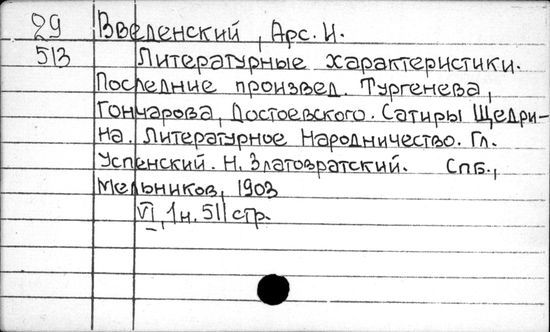 29 Введенский, Арс. И.
513 Литературные характеристики.
Последние произвед. Тургенева,
Гончарова, Достоевского. Сатиры Щедри-
на. Литературное Народничество. Гл.
Успенский. Н. Златовратский. Спб.,
Мельников, 1903
VI, 1н. 511 стр.